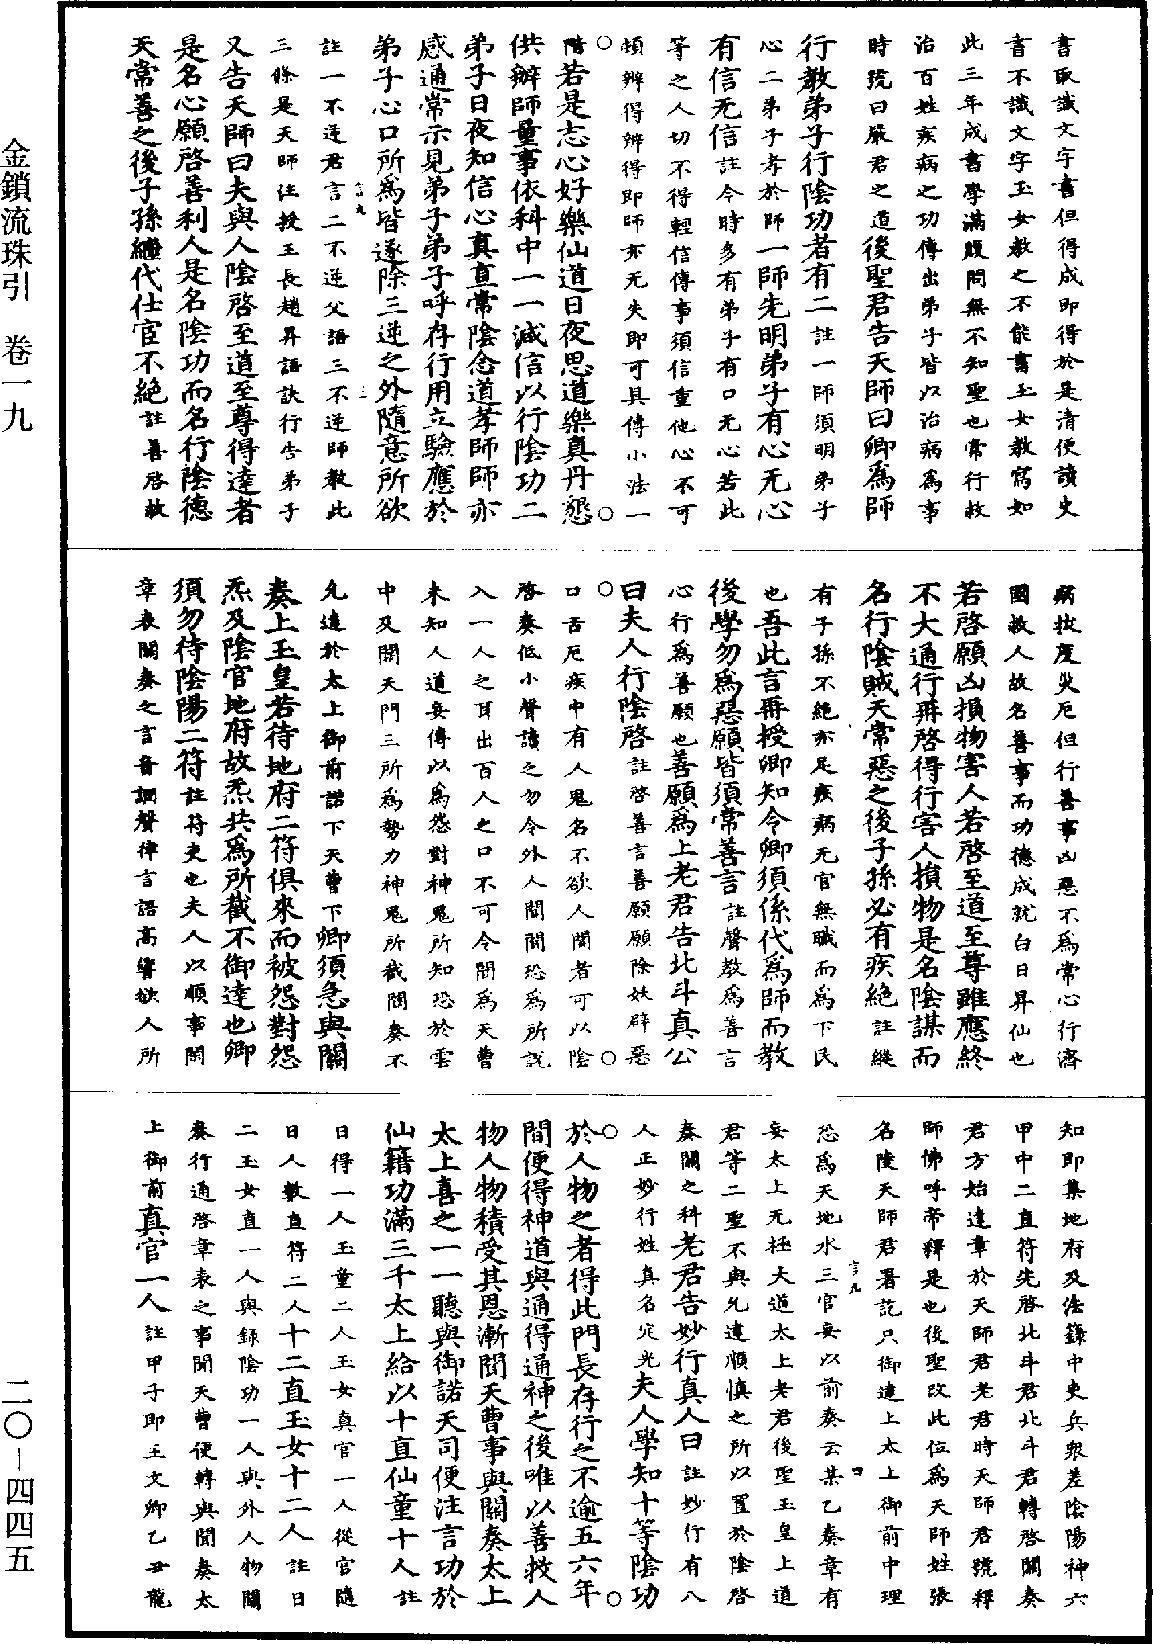 書取識文字書但得成即得於是清便讀史
書不識文字玉女教之不能書玉女教寫如
此三年成書學滿腹問無不知聖也常行救
治百姓疾病之功傳出弟子皆以治病為事
時號曰嚴君之道後聖君告天師曰卿為師
行教弟子行陰功者有二註一師須明弟子
心二弟子孝於師一師先明弟子有心无心
有信无信註今時多有弟子有口无心若此
等之人切不得輕信傳事須信重他心不可
頓辨得辨得即師亦无失即可具傳小法一
階若是志心好樂仙道日夜思道樂真丹懇
供辦師量事依科中一一減信以行陰功二
弟子日夜知信心真直常陰念道孝師師亦
感通常示見弟子弟子呼存行用立驗應於
弟子心口所為皆遂除三逆之外隨意所欲
註一不逆君言二不逆父語三不逆師教此
三條是天師注授王長趙昇語訣行告弟子
又告天師曰夫與人陰啓至道至尊得達者
是名心願啓善利人是名陰功而名行陰德
天常善之後子孫繼代仕官不絶註善啓救
病拔度災厄但行善事凶惡不為常心行濟
國救人故名善事而功德成就白日昇仙也
若啓願凶損物害人若啓至道至尊雖應終
不大通行再啓得行害人損物是名陰謀而
名行陰賊天常惡之後子孫必有疾絶註縱
有子孫不絶亦足疾病无官無職而為下民
也吾此言再授卿知令卿須係代為師而教
後學勿為惡願皆須常善言註聲教為善言
心行為善願也善願為上老君告北斗真公
曰夫人行陰啓註啓善言善願願除妖辟惡
口舌厄疾中有人鬼名不欲人聞者可以陰
啓奏低小聲讀之勿令外人聞聞恐為所說
入一人之耳出百人之口不可令聞為天曹
未知人道妄傳以為怨對神鬼所知恐於雲
中及闇天門三所為勢力神鬼所截闇奏不
允達於太上御前諾下天曹下卿須急與關
奏上玉皇若待地府二符俱來而被怨對怨
炁及陰官地府故炁共為所截不御達也卿
須勿待陰陽二符註符吏也夫人以順事閑
章表關奏之言音調聲律言語高響欲人所
知即集地府及法籙中吏兵衆差陰陽神六
甲中二直符先啓北斗君北斗君轉啓關奏
君方始達章於天師君老君時天師君號釋
師佛呼帝釋是也後聖改此位為天師姓張
名陵天師君署訖只御達上太上御前中理
恐為天地水三官妄以前奏云某乙奏章有
妄太上无極大道太上老君後聖玉皇上道
君等二聖不與允達順慎之所以置於陰啓
奏關之科老君告妙行真人曰註妙行有八
人正妙行姓真名定光夫人學知十等陰功
於人物之者得此門長存行之不逾五六年
間便得神道與通得通神之後唯以善救人
物人物積受其恩漸聞天曹事與關奏太上
太上喜之一一聽與御諾天司便注言功於
仙籍功滿三千太上給以十直仙童十人註
日得一人玉童二人玉女真官一人從官隨
日人數直符二人十二直玉女十二人註日
二玉女直一人與録陰功一人與外人物關
奏行通啓章表之事聞天曹便轉與聞奏太
上御前真官一人註甲子即王文卿乙丑龍
金鎖流珠引　卷一九
二〇－四四五